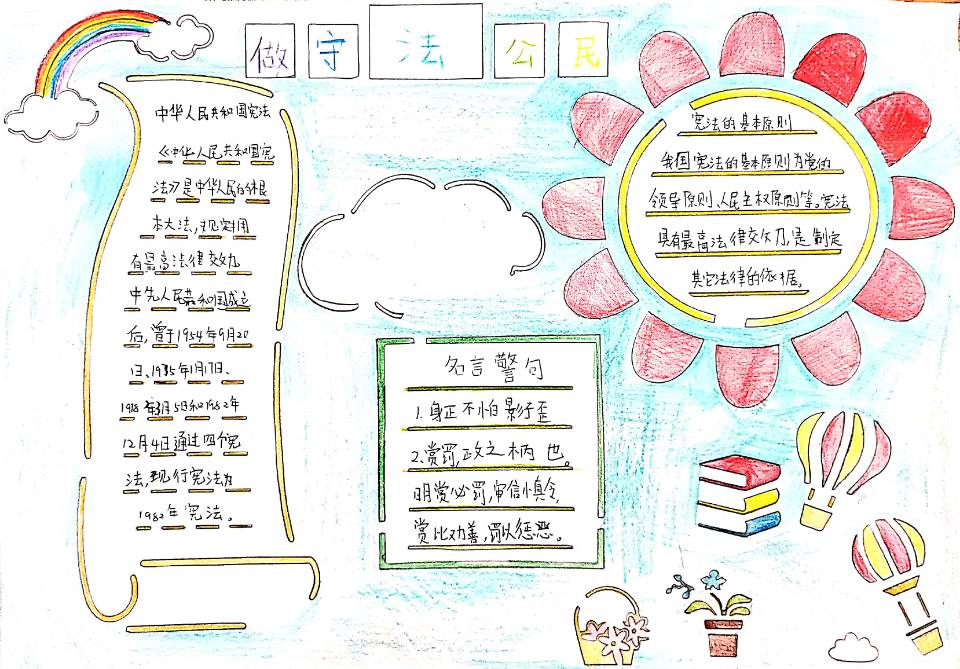 做守法公民
中华人民共和国宪法
《中华人民共和国宪
法》是中华人民的根
本大法,规定拥
有最高法律效力
中华人民共和国成立
后,曾于1954年9月20
日、1975年1月17日、
1978年3月5日和1982年
12月4日通过四个宪
法,现行宪法为
1982年宪法。
宪法的基本原则
我国宪法的基本原则为党的
领导原则、人民主权原则等。宪法
具有最高法律效力,是制定
其它法律的依据。
名言警句
1.身正不怕影子歪
2.赏罚,政之柄也。
明赏必罚,审信慎令,
赏以劝善,罚以惩恶。